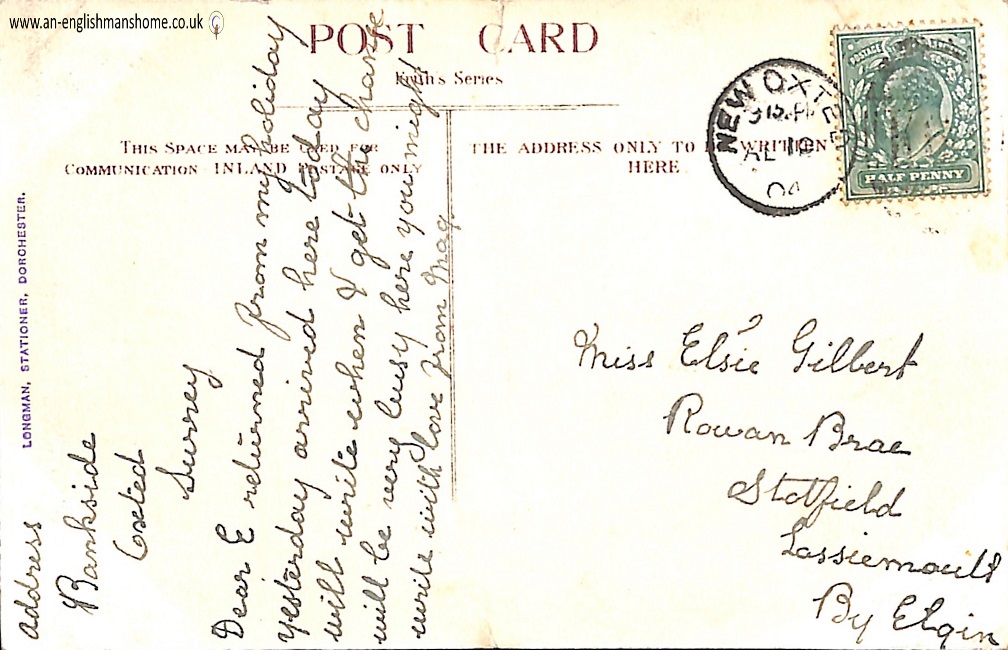 www.an-englishmanshome.co.uk
POST CARD
Frith's Series
THIS SPACE MAY BE USED FOR
COMMUNICATION INLAND POSTAGE ONLY
THE ADDRESS ONLY TO BE WRITTEN
HERE
NEW OXTED
AU 10
04
POSTAGE
HALF PENNY
LONGMAN, STATIONER, DORCHESTER.
address
Bankside
Oxted
Surrey
Dear E returned from my holiday
yesterday arrived here today
will write when I get the chance
will be very busy here you might
write with love from Mag.
Miss Elsie Gilbert
Rowan Brae
Stotfield
Lossiemouth
By Elgin